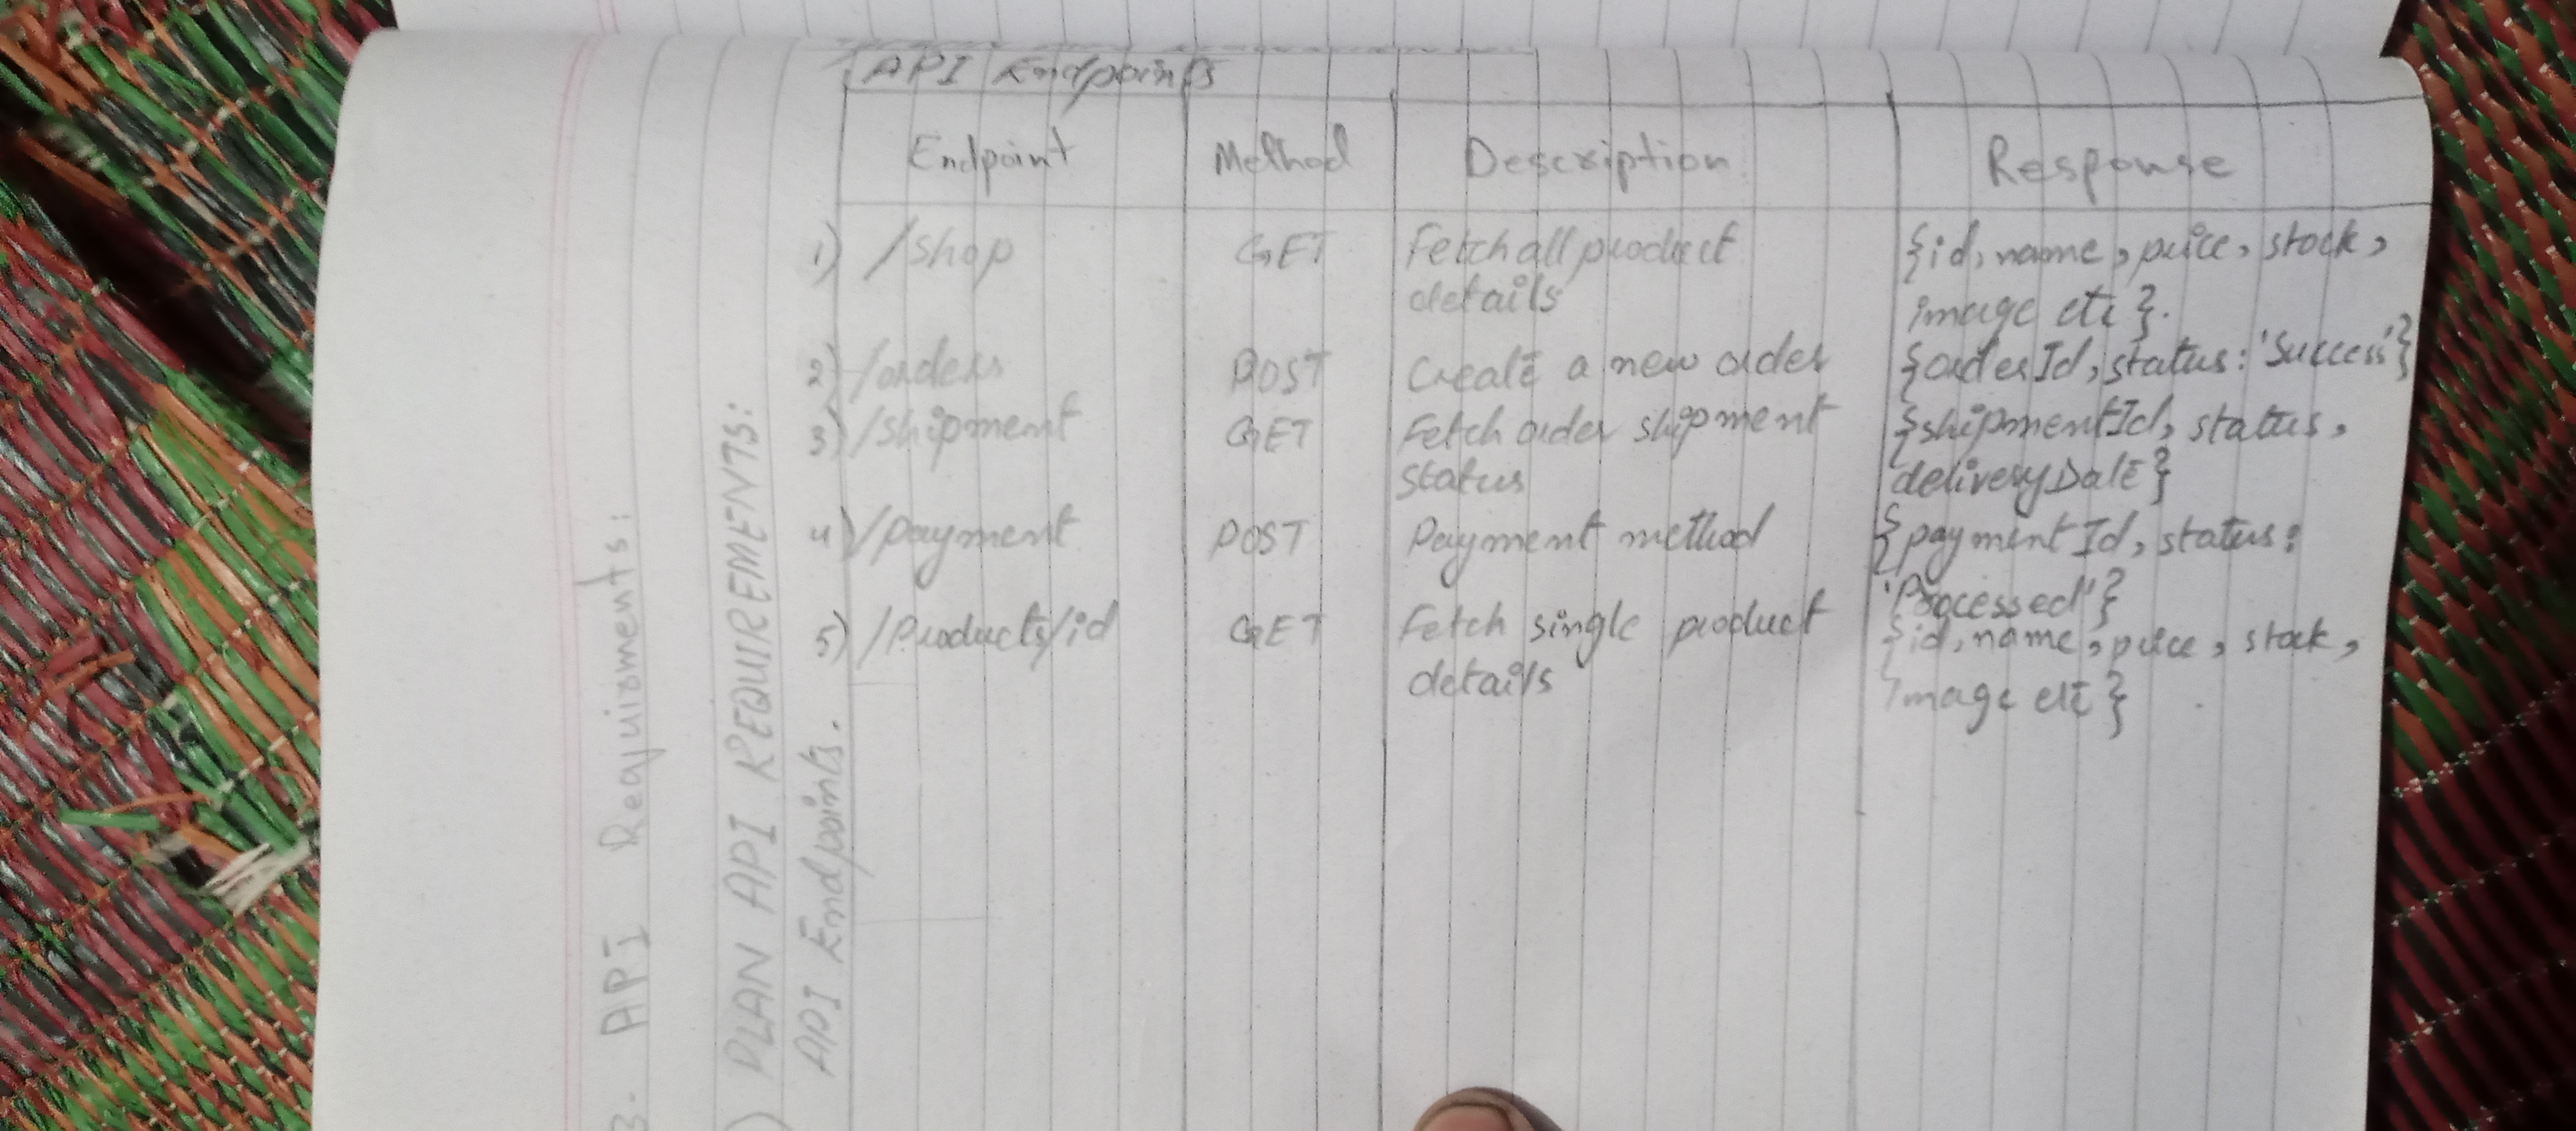 3. API Requirements:
PLAN API REQUIREMENTS:
API Endpoints.
API Endpoints
Endpoint Method Description Response
1) /shop GET Fetch all product {id, name, price, stock,
details image etc}.
2) /orders POST Create a new order {orderId, status: 'Success'}
3) /shipment GET Fetch order shipment {shipmentId, status,
status deliveryDate}
4) /payment POST Payment method {paymentId, status:
'Processed'}
5) /Products/id GET Fetch single product {id, name, price, stock,
details Image etc}